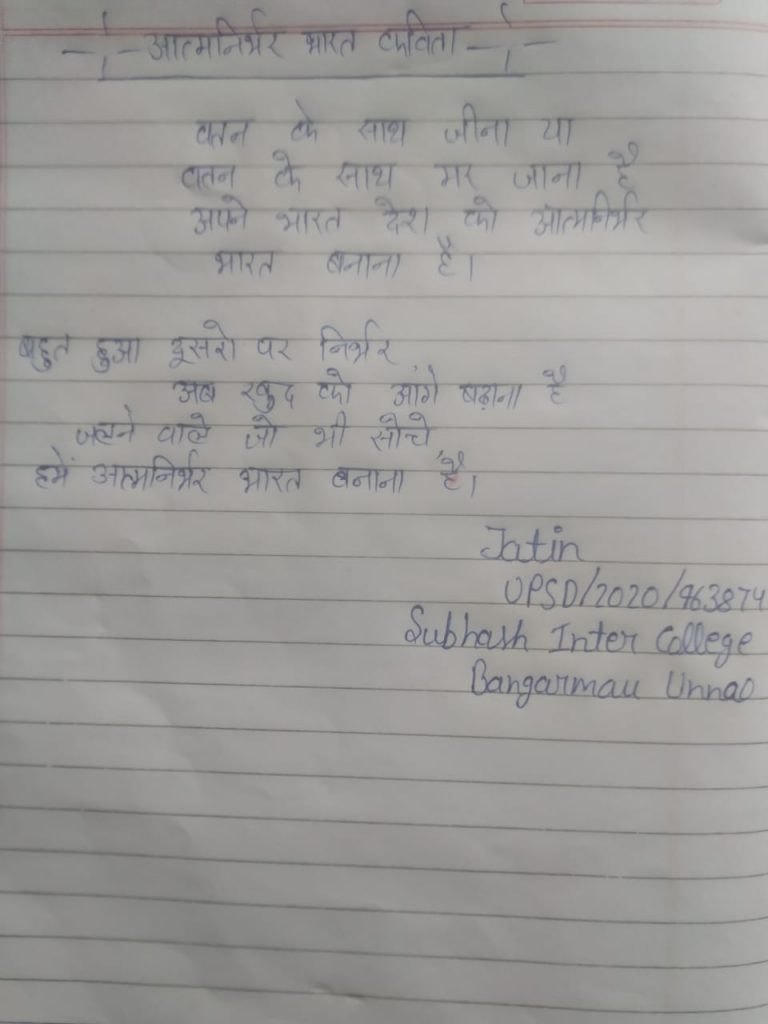 -:- आत्मनिर्भर भारत कविता -:-
वतन के साथ जीना या
वतन के साथ मर जाना है
अपने भारत देश को आत्मनिर्भर
भारत बनाना है।
बहुत हुआ दूसरो पर निर्भर
अब खुद को आंगे बढ़ाना है
जलने वाले जो भी सोचे
हमें आत्मनिर्भर भारत बनाना है।
Jatin
UPSD/2020/963874
Subhash Inter College
Bangarmau Unnao